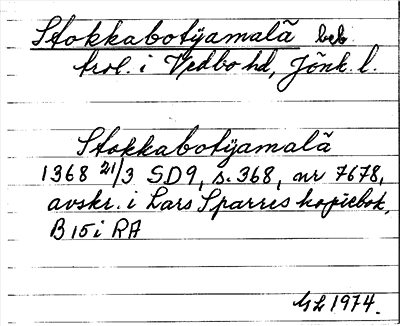 Stokkabotyamalã beb.
trol. i Vedbo hd, Jönk. l.
Stokkabotyamalã
1368 21/3 SD9, s. 368, nr 7678,
avskr. i Lars Sparres kopiebok,
B 15 i RA
1974.